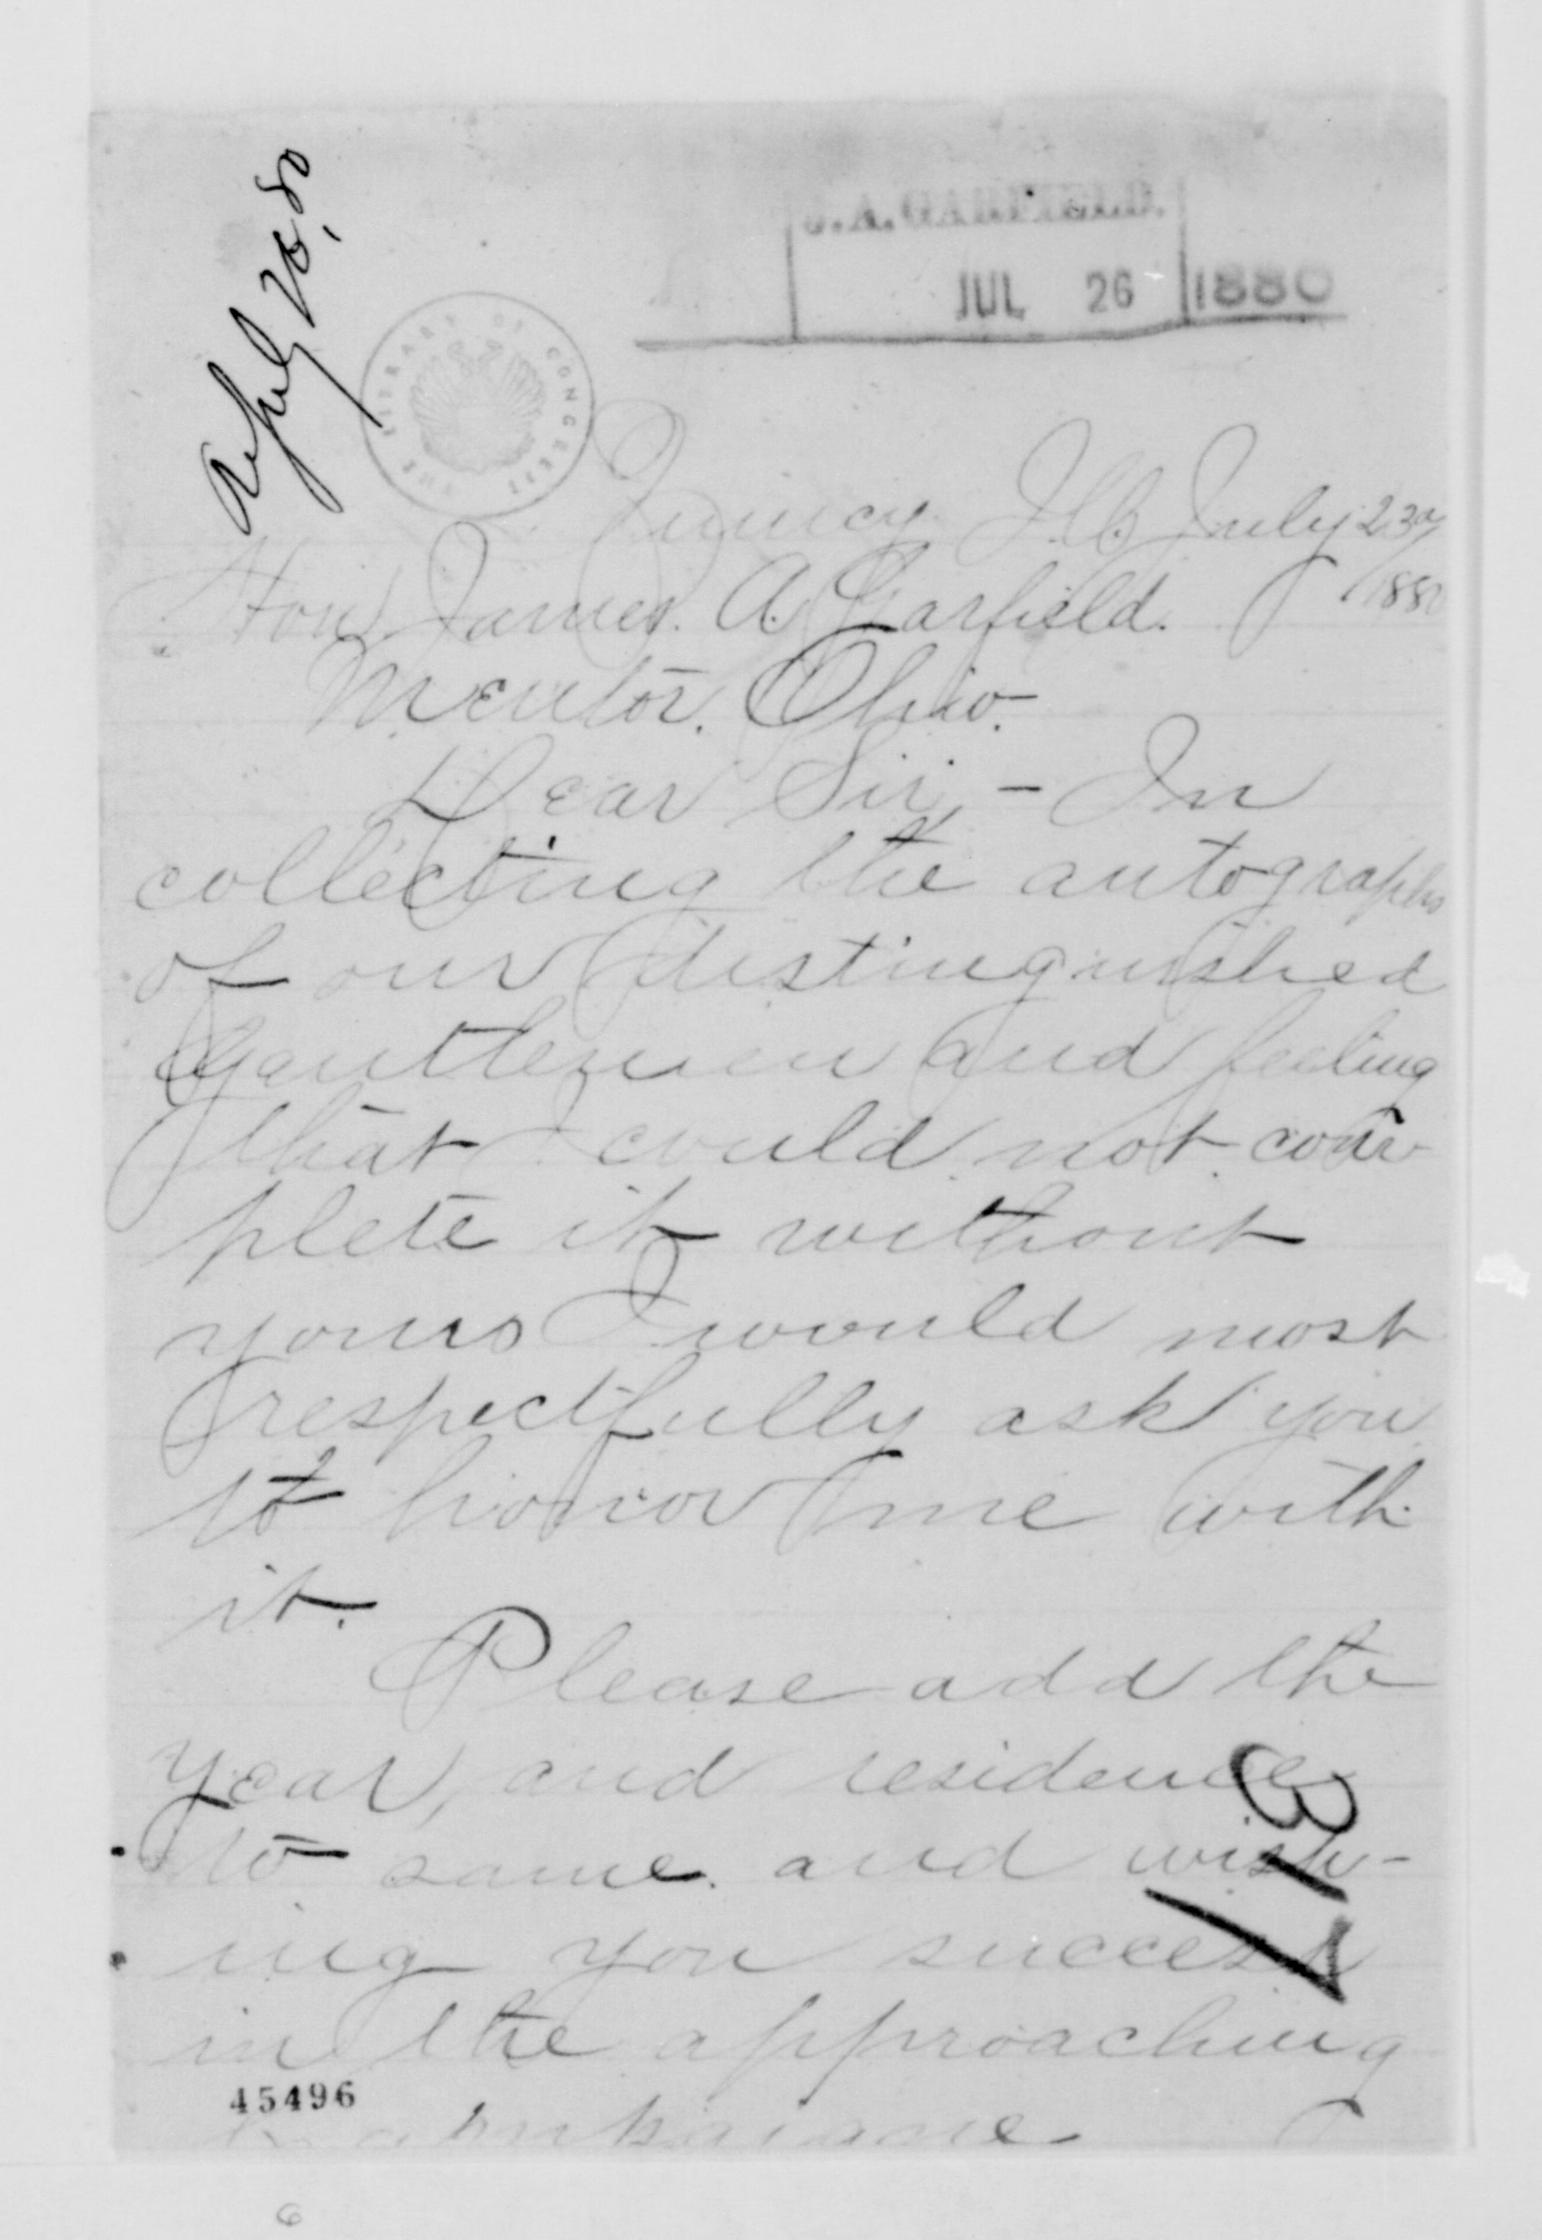 J.A. GARFIELD.
JUL 26 1880
THE LIBRARY OF CONGRESS
Quincy Ill. July 23d/
1880
Hon James. A. Garfield.
Mentor. Ohio.
Dear Sir, - In
collecting the autographs
of our distinguished
gentlemen and feeling
that I could not com
plete it without
yours I would most
respectfully ask you
to honor me with
it.
Please add the
year, and residence
to same. and wish-
ing you success
in the approaching
campaigne
45496
6